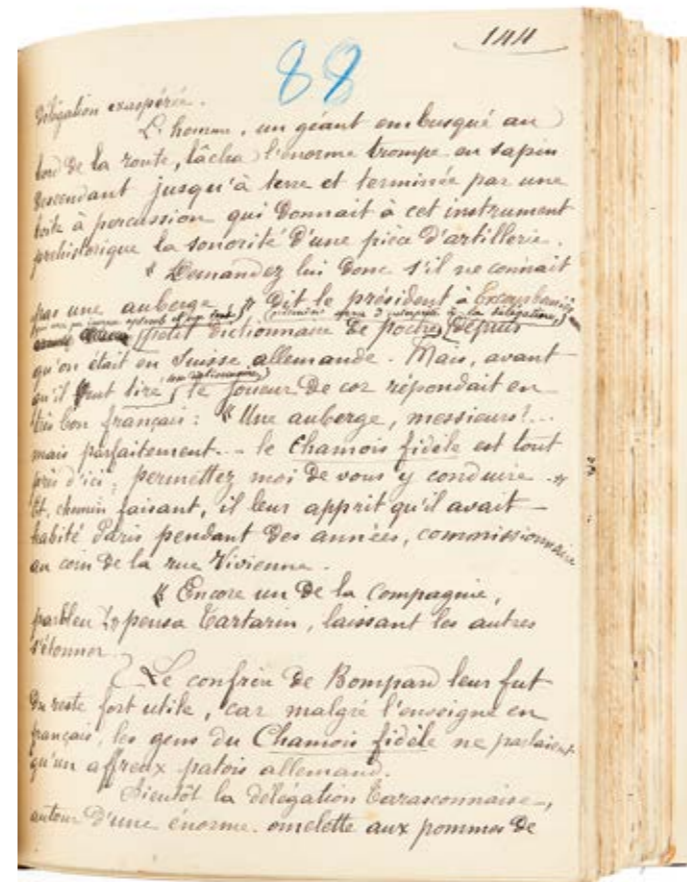 144
88
délégation exaspérée.
L'homme, un géant embusqué au
bord de la route, lâcha l'énorme trompe en sapin
descendant jusqu'à terre et terminée par une
boite à percussion qui donnait à cet instrument
prehistorique la sonorité d'une pièce d'artillerie.
"Demandez lui donc s'il ne connait
pas une auberge," dit le président à Excourbaniès
petit dictionnaire de poche, depuis
qu'on était en Suisse allemande. Mais, avant
qu'il eut tiré son dictionnaire, le joueur de cor répondait en
très bon français: "Une auberge, messieurs?...
mais parfaitement... le Chamois fidèle est tout
près d'ici; permettez moi de vous y conduire."
Et, chemin faisant, il leur apprit qu'il avait
habité Paris pendant des années, commissionnaire
au coin de la rue Vivienne.
"Encore un de la Compagnie,
parbleu!" pensa Tartarin, laissant les autres
s'étonner.
Le confrère de Bompard leur fut
du reste fort utile, car malgré l'enseigne en
français, les gens du Chamois fidèle ne parlaient
qu'un affreux patois allemand.
Bientôt la délégation tarasconnaise,
autour d'une énorme omelette aux pommes de